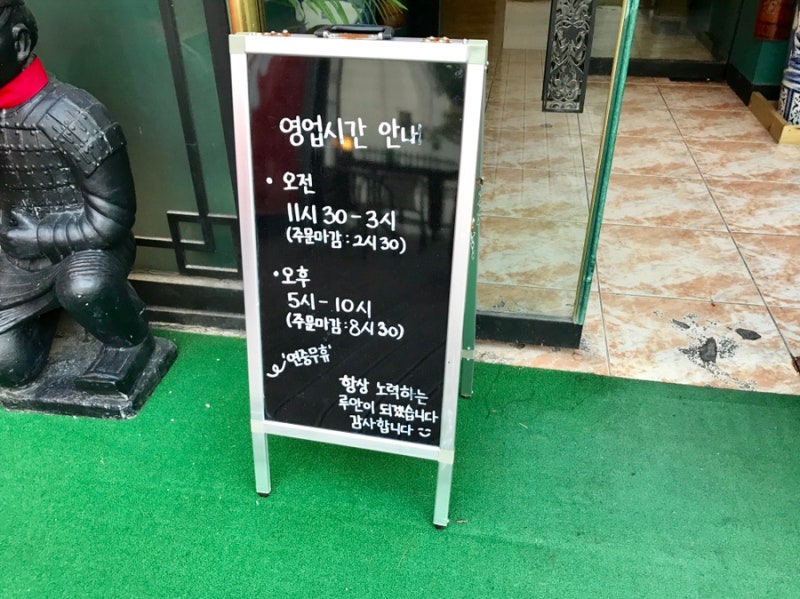 영업시간 안내
• 오전
11시 30 - 3시
(주문마감 : 2시 30)
• 오후
5시 - 10시
(주문마감 : 8시 30)
'연중무휴'
항상 노력하는
루안이 되겠습니다
감사합니다